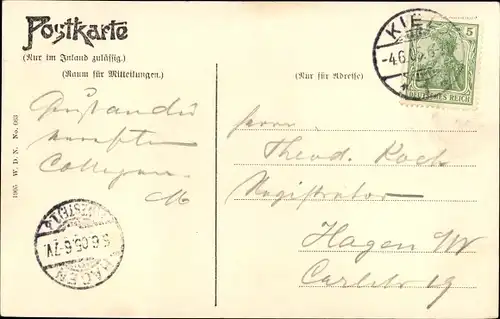 Postkarte
(Nur im Inland zulässig.)
(Raum für Mitteilungen.)
(Nur für Adresse)
KIEL
-4.6.05.
5
DEUTSCHES REICH
Collegen
M
Herrn
Theod. Koch
Registrator
Hagen i/W
Carlstr 19
1905 W. D. N. No. 063
HAGEN
5.6.05.6-7V.